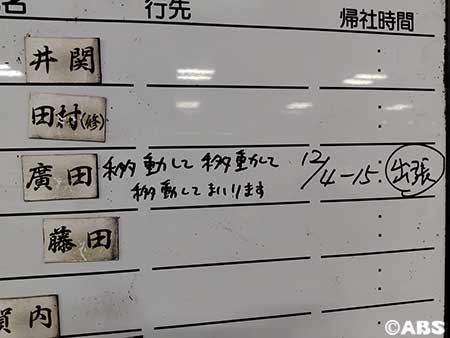 名 行先 帰社時間
井関
田村(修)
廣田 移動して 移動して 12/4-15: 出張
移動してまいります
藤田
賀内
©ABS